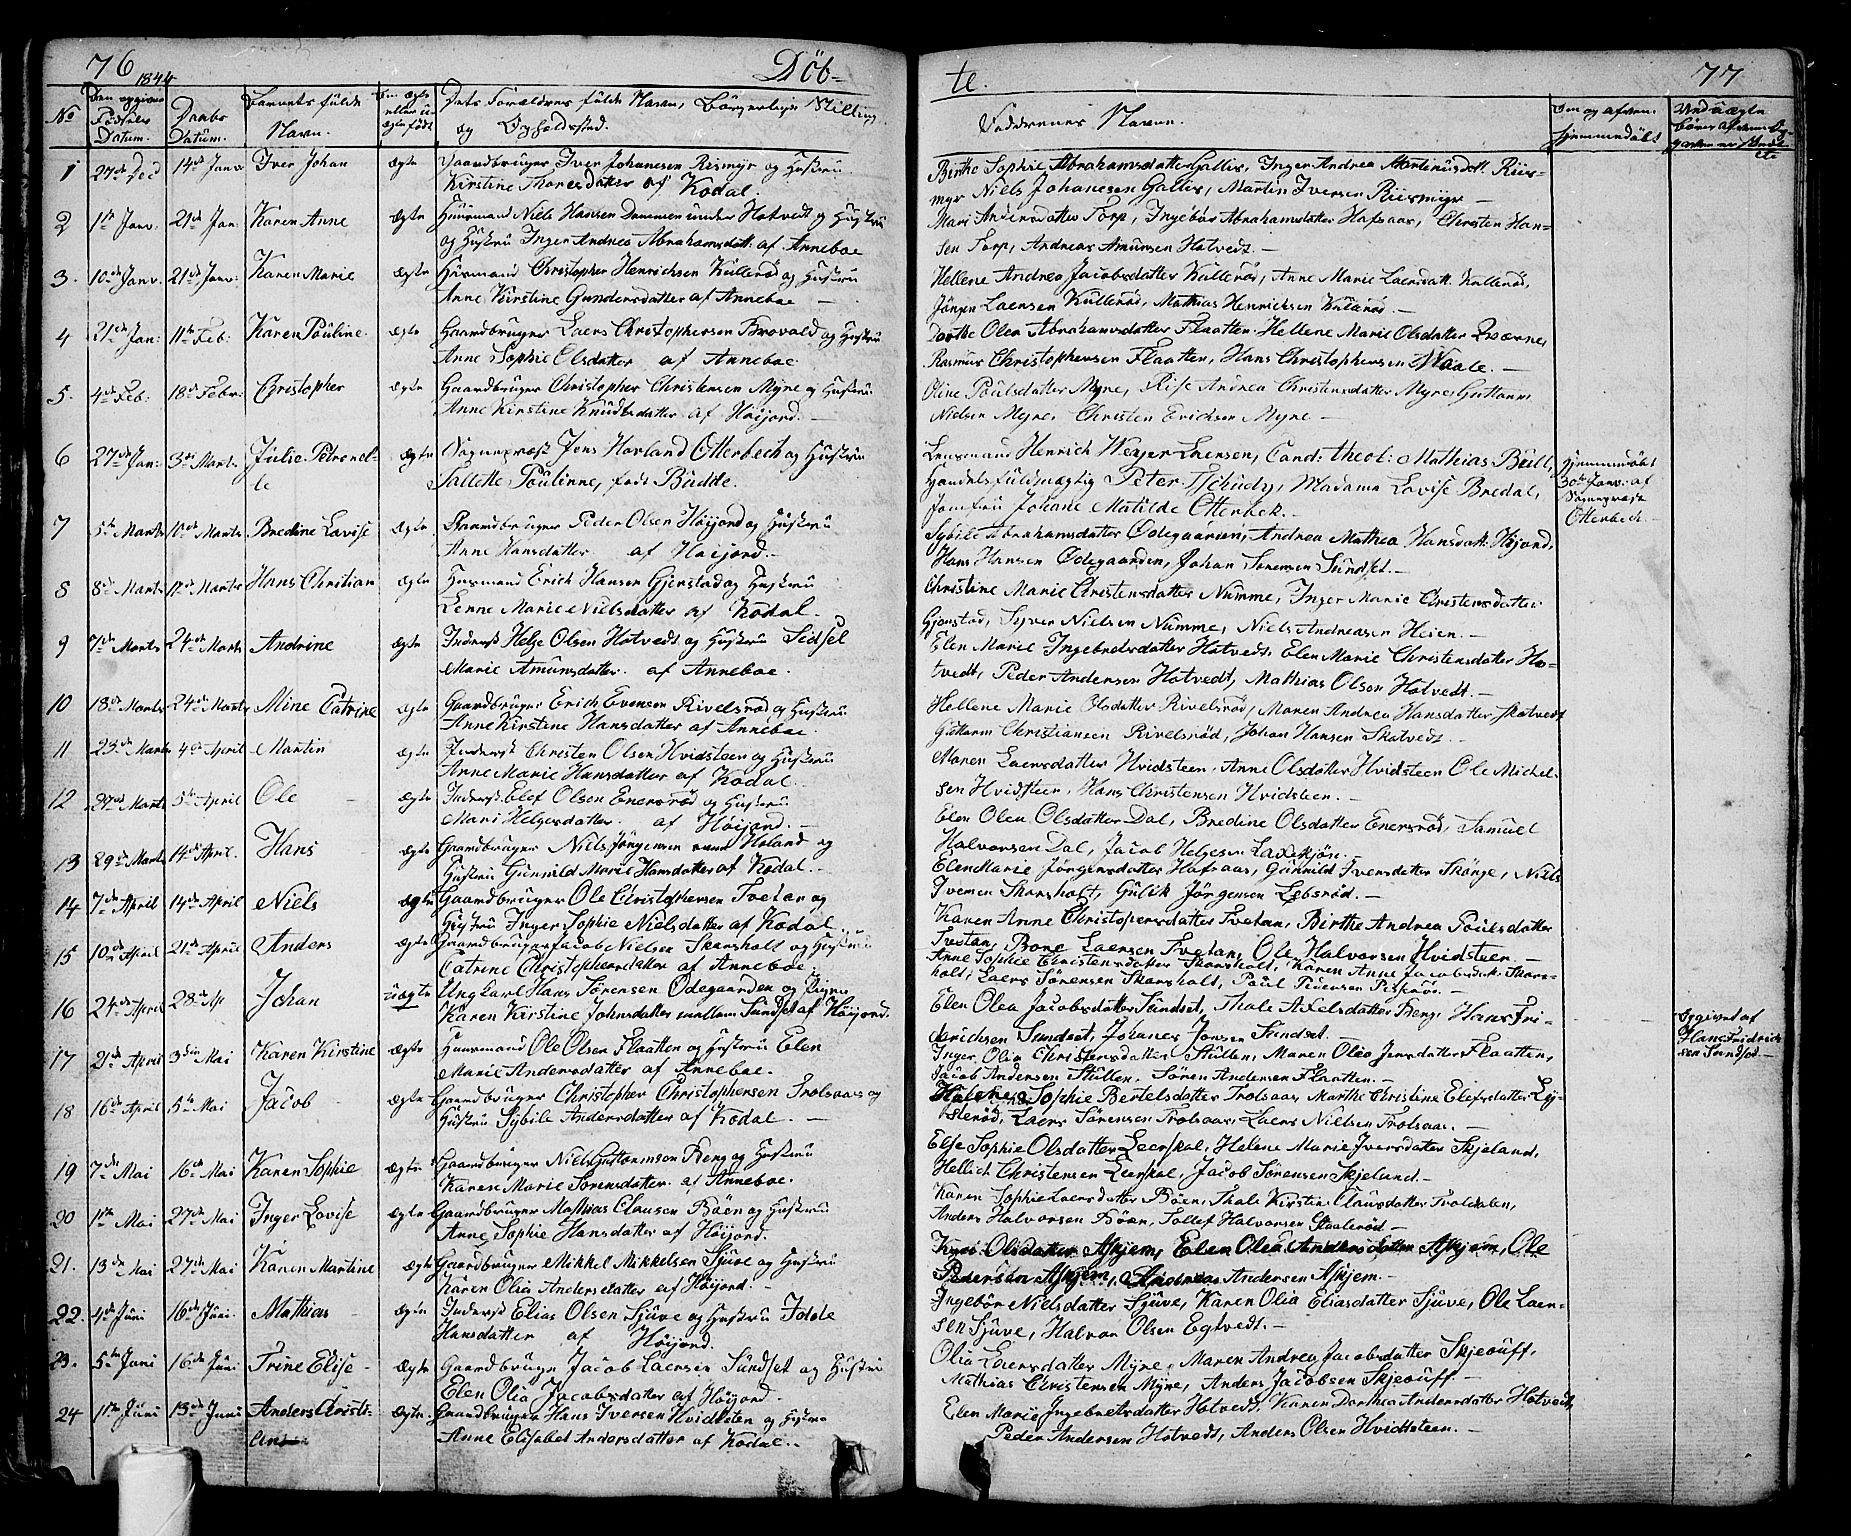 76
1844
Döb-
No
Den opgivne Födsels Datum.
Daabs Datum.
Barnets fulde Navn.
Om ægte eller uægte födt
Dets Forældres fulde Navn, Borgerlige Stilling og Opholdssted.
1 27de Dec 14de Janv: Iver Johan ægte Gaardbruger Iver Johanesen Riismyr og Hustru
Kirstine Thoresdatter af Kodal.
2 1ste Janv: 21de Jan: Karen Anne ægte Huusmand Niels Hansen Dammen under Hotvedt og Hustru
og Hustru Inger Andrea Abrahamsdatt: af Anneboe
3. 10de Janv. 21de Janv: Karen Marie ægte Husmand Christopher Henrichsen Kullerød og Hustru
Anne Kirstine Gundersdatter af Anneboe
4 21de Jan: 11te Feb: Karen Pouline. ægte Gaardbruger Laers Christophersen Brovald og Hustru
Anne Sophie Olsdatter af Anneboe
5. 4de Feb: 18de Febr: Christopher ægte Gaardbruger Christopher Christensen Myre og Hustru
Anne Kirstine Knudtsdatter af Höijord.
6 27de Jan: 3die Marts Julie Petronel- ægte Sognepræst Jens Horland Otterbech og Hustru
le Tallette Poulinne, född Budde.
7 5te Marts 10de Marts Bredine Lovise ægte Gaardbruger Peder Olsen Höijord og Hustru
Anne Hansdatter af Höijord.
8 8de Marts 17de Marts Hans Christian ægte Husmand Erich Hansen Gjerstad og Hustru
Lenne Marie Nielsdatter af Kodal.
9 7de Marts 24de Marts Andrine ægte Inderst Helge Olsen Hotvedt og Hustru Sidsel
Marie Amunsdatter. af Anneboe.
10 18de Marts 24de Marts Mine Catrine ægte Gaardbruger Erich Evensen Rivelsrød og Hustru
Anne Kirstine Hansdatter af Anneboe.
11 23de Marts 4de April Martin ægte Inderst Christen Olsen Hvidsteen og Hustru
Anne Marie Hansdatter af Kodal.
12 27de Marts 5te April Ole ægte Inderst Elef Olsen Enersrød og Hustru
Mari Helgesdatter. af Höijord.
13 29de Marts 14de April. Hans ægte Gaardbruger Niels Jörgensen Holand og
Hustru Gunnild Marie Hansdatter af Kodal.
14 7de April 14de April Niels ægte Gaardbruger Ole Christophersen Tvetan og
Hustru Inger Sophie Nielsdatter af Kodal
15 10de April 21de April Anders ægte Gaardbruger Jacob Nielsen Skarsholt og Hustru
Catrine Christophersdatter af Anneboe
16 24de April 28de Ap Johan uægte Ungkarl Hans Sörensen Ödegaarden og Pigen
Karen Kirstine Johnsdatter mellem Sundset af Höijord.
17 21de April 3die Mai Karen Kirstine ægte Huusmand Ole Olsen Flaatten og Hustru Elen
Marie Andersdatter af Anneboe.
18 16de April 5te Mai Jacob ægte Gaardbruger Christopher Christophersen Trolsaas og
Hustru Sybile Andersdatter af Kodal.
19 7de Mai 16de Mai Karen Sophie ægte Gaardbruger Niels Guttormsen Berg og Hustru
Karen Marie Sorensdatter. af Anneboe.
20 1ste Mai 27de Mai Inger Lovise ægte Gaardbruger Mathias Clausen Böen og Hustru
Anne Sophie Hansdatter af Höijord.
21. 13de Mai 27de Mai Karen Martine ægte Gaardbruger Mikkel Mikkelsen Sjuve og Hustru
Karen Olia Andersdatter af Höijord.
22. 4de Juni 16de Juni. Mathias ægte Inderst Elias Olsen Sjuve og Hustru
Hansdatter af Höijord.
23. 5te Juni 16de Juni Trine Elise ægte Gaardbruger Jacob Laersen Sundset og Hustru
Elen Olia Jacobsdatter af Höijord.
24 11te Juni Juni Anders Christi- ægte. Gaardbruger Hans Iversen Hvidsten og Hustru
Anne Elisabet Andersdatter af Kodal.
te.
77
Faddrenes Navne.
Om og af hvem hjemmedöbt
Birthe Sophie Abrahamsdatter Gallis, Inger Andrea Martinusdatt. Riis-
myr Niels Johanesen Gallis, Martin Iversen Riismyr
Mari Andersdatter Torp, Ingebör Abrahamsdatter Hafsaas, Christen Han-
sen Torp, Andreas Amunsen Hotvedt.
Hellene Andrea Jacobsdatter Kullerød, Anne Marie Laersdatt. Kullerød,
Jörgen Laersen Kullerød, Mathias Henrichsen Kullerød.
Dorthe Olea Abrahamsdatter Flaatten. Hellene Marie Olsdatter Qværne,
Rasmus Christophersen Flaatten, Hans Christophersen
Oline Poulsdatter Myre, Andrea Christensdatter Myre Guttorm
Nielsen Myre, Christen Erichsen Myre
Lensmand Henrich Weyer Laersen, Cand: theol: Mathias Bull,
Handelsfuldmægtig Peter Tschudy, Madame Lovise Bredal,
Jomfru Johane Matilde Otterbek.
hjemmedöbt
30te Janv. af
Sognepræst
Otterbech
Sybile Abrahamsdatter Ödegaarden, Andrea Mathea Hansdatt. Höijord,
Hans Hansen Ödegaarden, Johan Sorensen Sundset.
Christine Marie Christensdatter Numme, Inger Marie Christensdatter
Gjerstad, Syver Nielsen Numme, Niels Andreasen Heien.
Elen Marie Ingebretsdatter Hotvedt, Elen Marie Christensdatter Ho-
tvedt, Peder Andersen Hotvedt, Mathias Olsen Hotvedt.
Hellene Marie Olsdatter Rivelsrød, Maren Andrea Hansdatter Skotvedt
Guttorm Christiansen Rivelsrød, Johan Hansen Skotvedt.
Maren Laersdatter Hvidsteen. Anne Olsdatter Hvidsteen Ole Michel-
sen Hvidsteen, Hans Christensen Hvidsteen.
Elen Olea Olsdatter Dal, Bredine Olsdatter Enersrød, Samuel
Halvorsen Dal, Jacob Helgesen Laxeskjön.
Elen Marie Jörgensdatter Hafsaas, Gunnild Iversdatter Skonge, Niels
Iversen Skarsholt, Gulik Jörgensen Lebsrød.
Karen Anne Christopersdatter Tvetan, Birthe Andrea Poulsdatter
Tvetan, Bone Laersen Tvetan, Ole Halvorsen Hvidsteen.
Anne Sophie Christensdatter Skarsholt, Karen Anne Jacobsdatt. Skars-
holt, Laers Sörensen Skarsholt, Poul Pedersen
Elen Olea Jacobsdatter Sundset, Thale Axelsdatter Berg, Hans Fri-
derichsen Sundset, Johanes Jonsen Sundset.
Opgivet af
Hans Fridrich
sen Sundset
Inger Olia Christensdatter Stullen, Maren Olea Jensdatter Flaatten,
Jacob Andersen Stullen, Sören Andersen Flaatten.
Sophie Bertelsdatter Trolsaas, Marthe Christine Elefsdatter Ly-
Laers Sörensen Trolsaas. Laers Nielsen Trolsaas.
Else Sophie Olsdatter Leerskal, Helene Marie Iversdatter Skjeland,
Hellich Christensen Leerskal, Jacob Sörensen Skjeland.
Karen Sophie Laersdatter Böen, Thale Kirstine Clausdatter Troldalen,
Anders Halvorsen Böen, Tollef Halvorsen Staalerød
Olsdatter Askjem, Elen Olea Andersdatter Askjem, Ole
Pedersen Askjem, Andreas Andersen Askjem.
Ingebör Nielsdatter Sjuve, Karen Olia Eliasdatter Sjuve, Ole Laer-
sen Sjuve, Halvor Olsen Egtvedt.
Olia Laersdatter Myre, Maren Andrea Jacobsdatter Skjeouff,
Mathias Christensen Myre, Anders Jacobsen Skjeouff
Elen Marie Ingebretsdatter Hotvedt, Karen Dorthea Andersdatter Hotvedt,
Peder Andersen Hotvedt, Anders Olsen Hvidsteen.